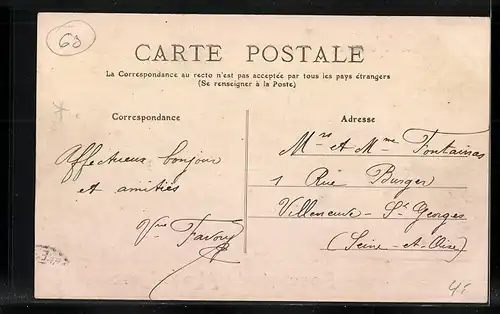 60
CARTE POSTALE
La Correspondance au recto n'est pas acceptée par tous les pays étrangers
(Se renseigner à la Poste)
Correspondance
Affectueux bonjour
et amitiés
Vve Favory
Adresse
Mrs et Mme Fontainas
1 Rue Burger
Villeneuve-St Georges
(Seine-et-Oise)